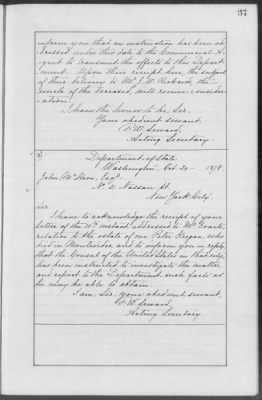 37
inform you that an instruction has been ad-
dressed under this date to the Commercial A-
gent to transmit the effects to this Depart-
ment. Upon their receipt here, the subject
of their delivery to Mr. J. W. Richards, the
uncle of the deceased, will receive consider-
ation.
I have the honor to be, Sir,
Your obedient servant,
F. W. Seward,
Acting Secretary.
Department of State
Washington, Oct. 24 - 1878.
John Esq.
No. 2 Nassau St.
New York City.
Sir:
I have to acknowledge the receipt of your
letter of the instant, addressed to Mr. Evarts,
relative to the estate of one Peter who
died in Montevideo and to inform you in reply
that the Consul of the United States in that city
has been instructed to investigate the matter
and report to the Department such facts as
he may be able to obtain.
I am, Sir, your obedient servant,
F. W. Seward,
Acting Secretary